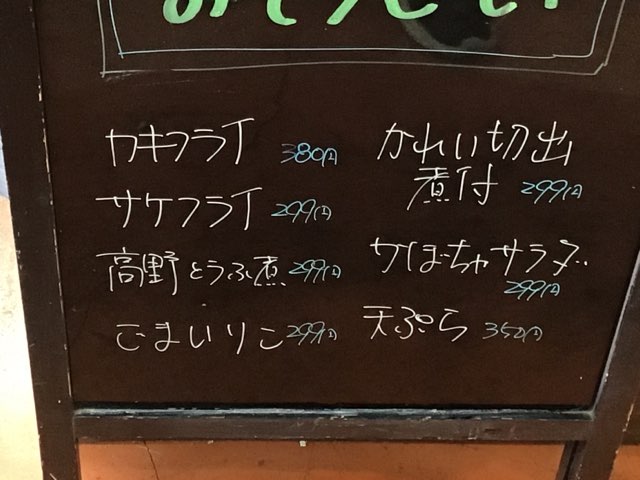 カキフライ 380円
サケフライ 299円
高野とうふ煮 299円
ごまいりこ 299円
かれい切出
煮付 299円
かぼちゃサラダ
299円
天ぷら 350円